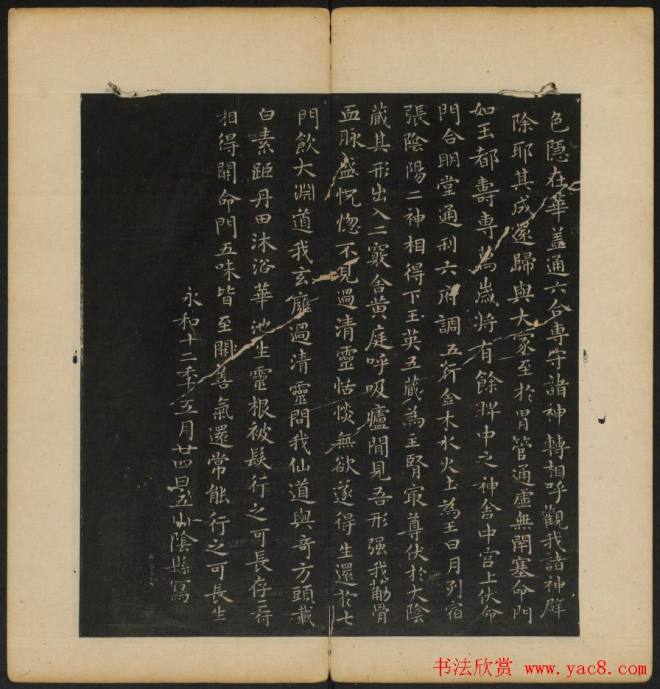 色隱在華盖通六合專守諸神轉相呼觀我諸神辟
除耶其成還歸與大家至於胃管通虛無閉塞命門
如玉都壽專萬歲將有餘脾中之神舍中宮上伏命
門合明堂通利六府調五行金木水火土為王日月列宿
張陰陽二神相得下玉英五藏為主腎最尊伏於大陰
藏其形出入二竅舍黃庭呼吸廬間見吾形强我筋骨
血脉盛怳惚不見過清靈恬惔無欲遂得生還於七
門飲大淵道我玄廱過清靈問我仙道與奇方頭載
白素距丹田沐浴華池生靈根被髮行之可長存二府
相得開命門五味皆至開善氣還常能行之可長生
永和十二年五月廿四日五山陰縣寫
书法欣赏 www.yac8.com